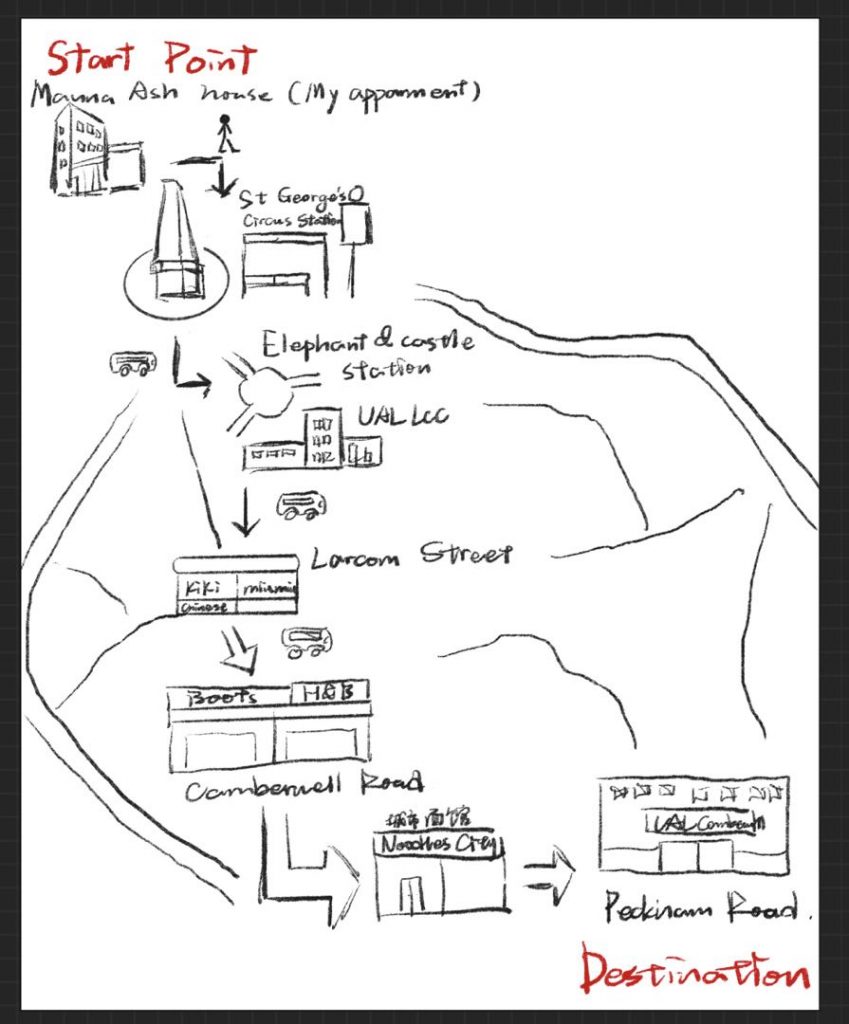 Start Point
Manna Ash house (My appoinment)
St George's
Circus Station
Elephant & castle
station
UAL LCC
Larcom Street
Kiki
Chinese
Boots H&B
Camberwell Road
城市面馆
Noodles City
UAL Camberwell
Peckham Road.
Destination